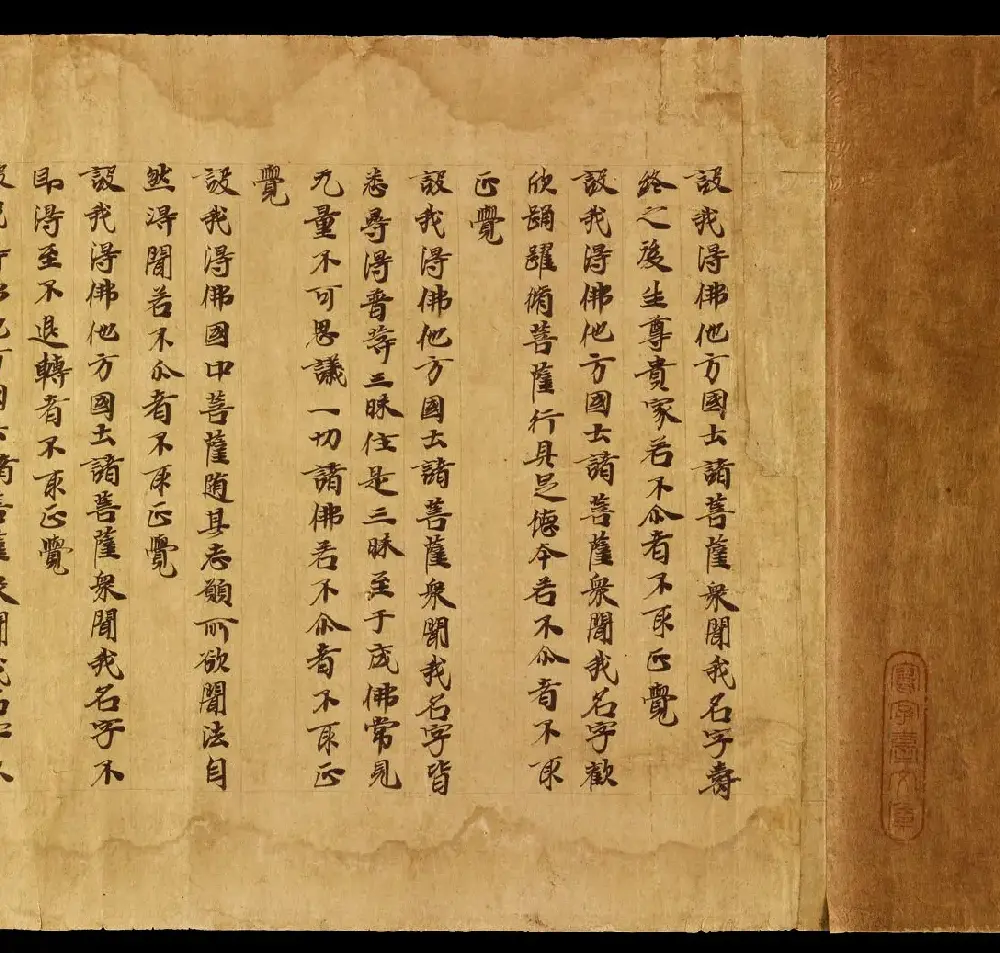 設我得佛他方國土諸菩薩衆聞我名字壽
終之後生尊貴家若不尒者不取正覺
設我得佛他方國土諸菩薩衆聞我名字歡
欣踊躍脩菩薩行具足德本若不尒者不取
正覺
設我得佛他方國土諸菩薩衆聞我名字皆
悉尋得普等三昧住是三昧至于成佛常見
无量不可思議一切諸佛若不尒者不取正
覺
設我得佛國中菩薩随其志願所欲聞法自
然得聞若不尒者不取正覺
設我得佛他方國土諸菩薩衆聞我名字不
即得至不退轉者不取正覺
寫字臺文庫